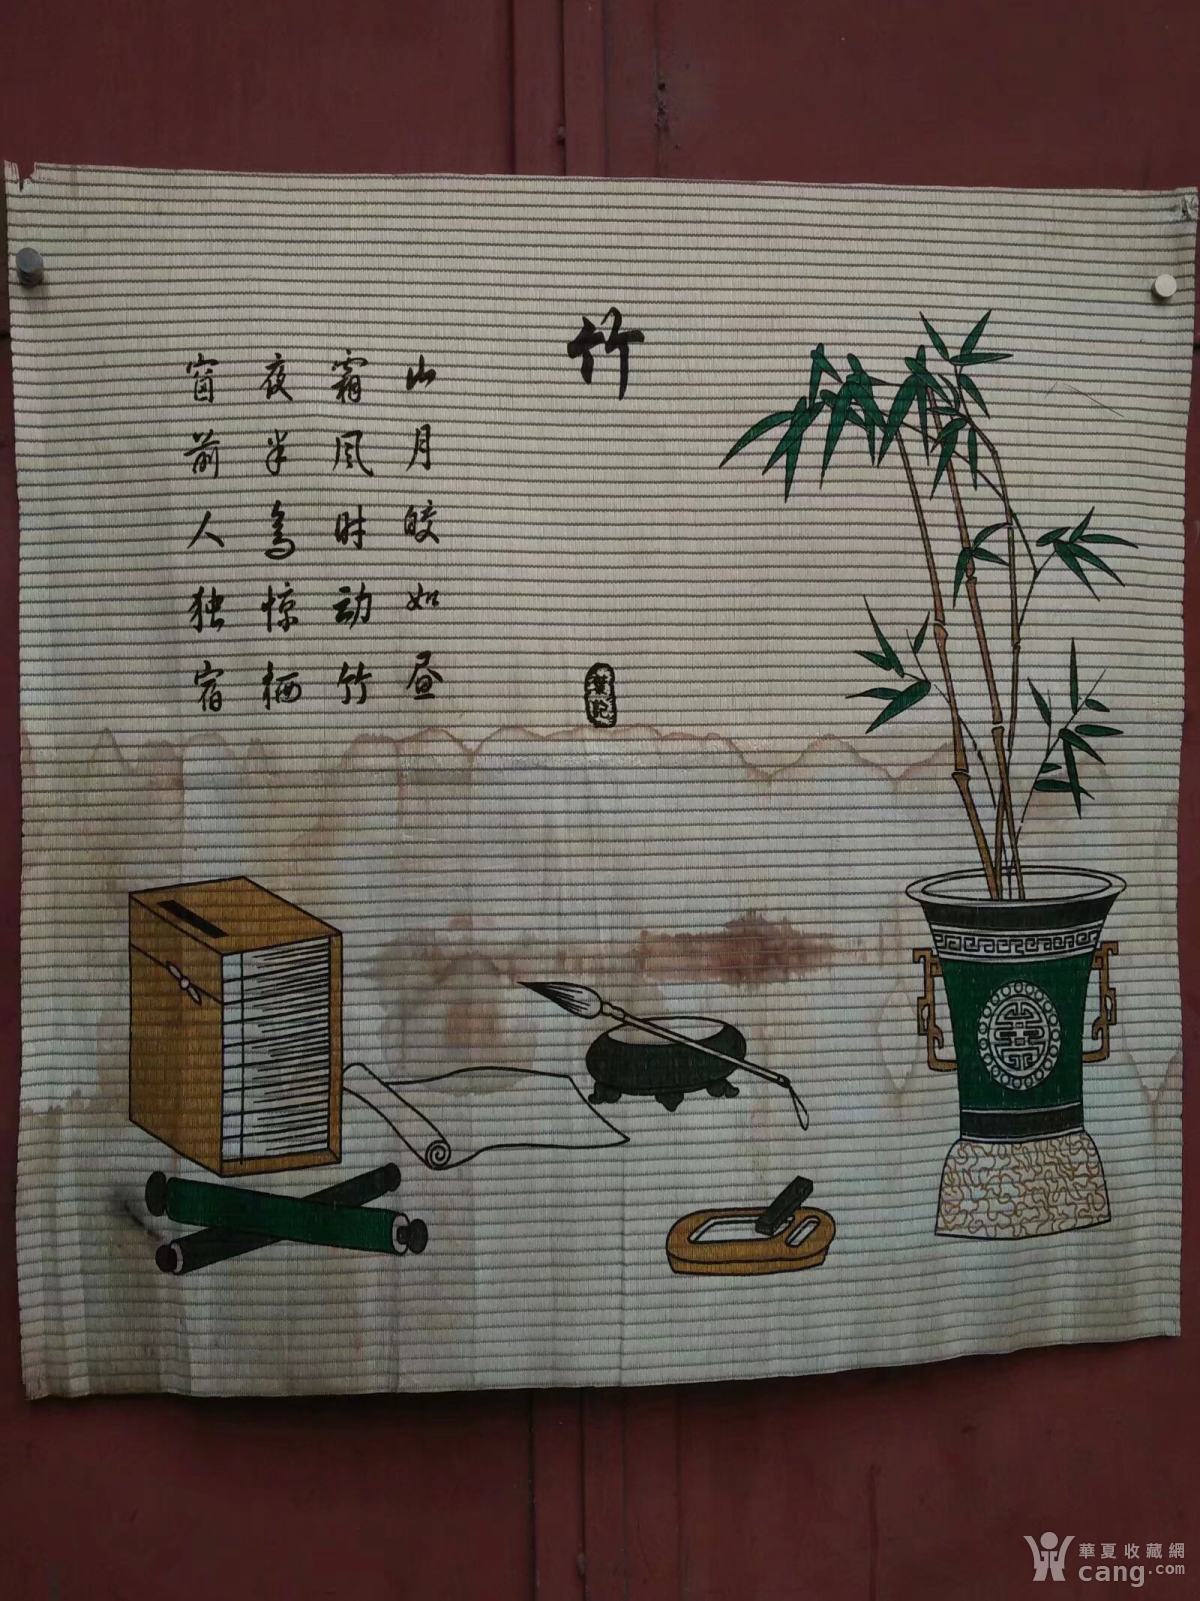 竹
山月皎如昼
霜风时动竹
夜半鸟惊栖
窗前人独宿
華夏收藏網
cang.com